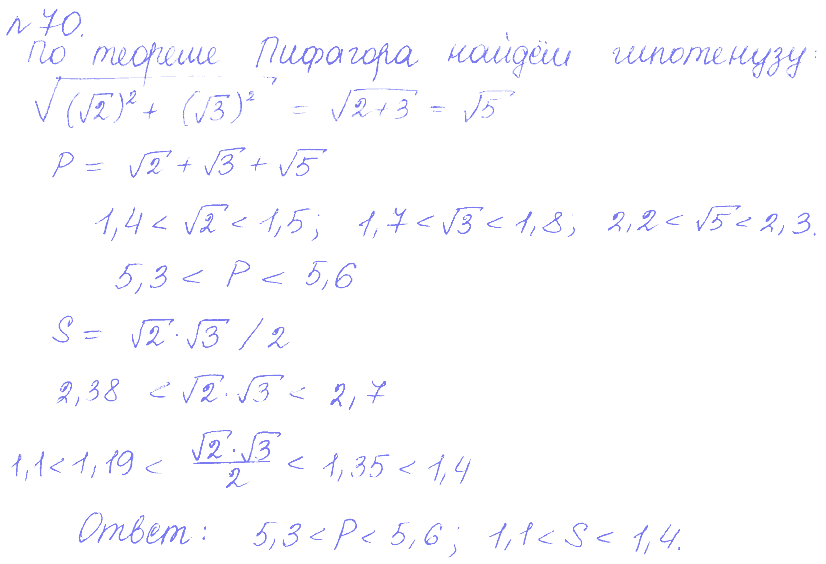 № 70.
По теореме Пифагора найдём гипотенузу:
√((√2)² + (√3)²) = √(2+3) = √5
P = √2 + √3 + √5
1,4 < √2 < 1,5; 1,7 < √3 < 1,8; 2,2 < √5 < 2,3.
5,3 < P < 5,6
S = √2 · √3 / 2
2,38 < √2 · √3 < 2,7
1,1 < 1,19 < (√2 · √3)/2 < 1,35 < 1,4
Ответ: 5,3 < P < 5,6; 1,1 < S < 1,4.